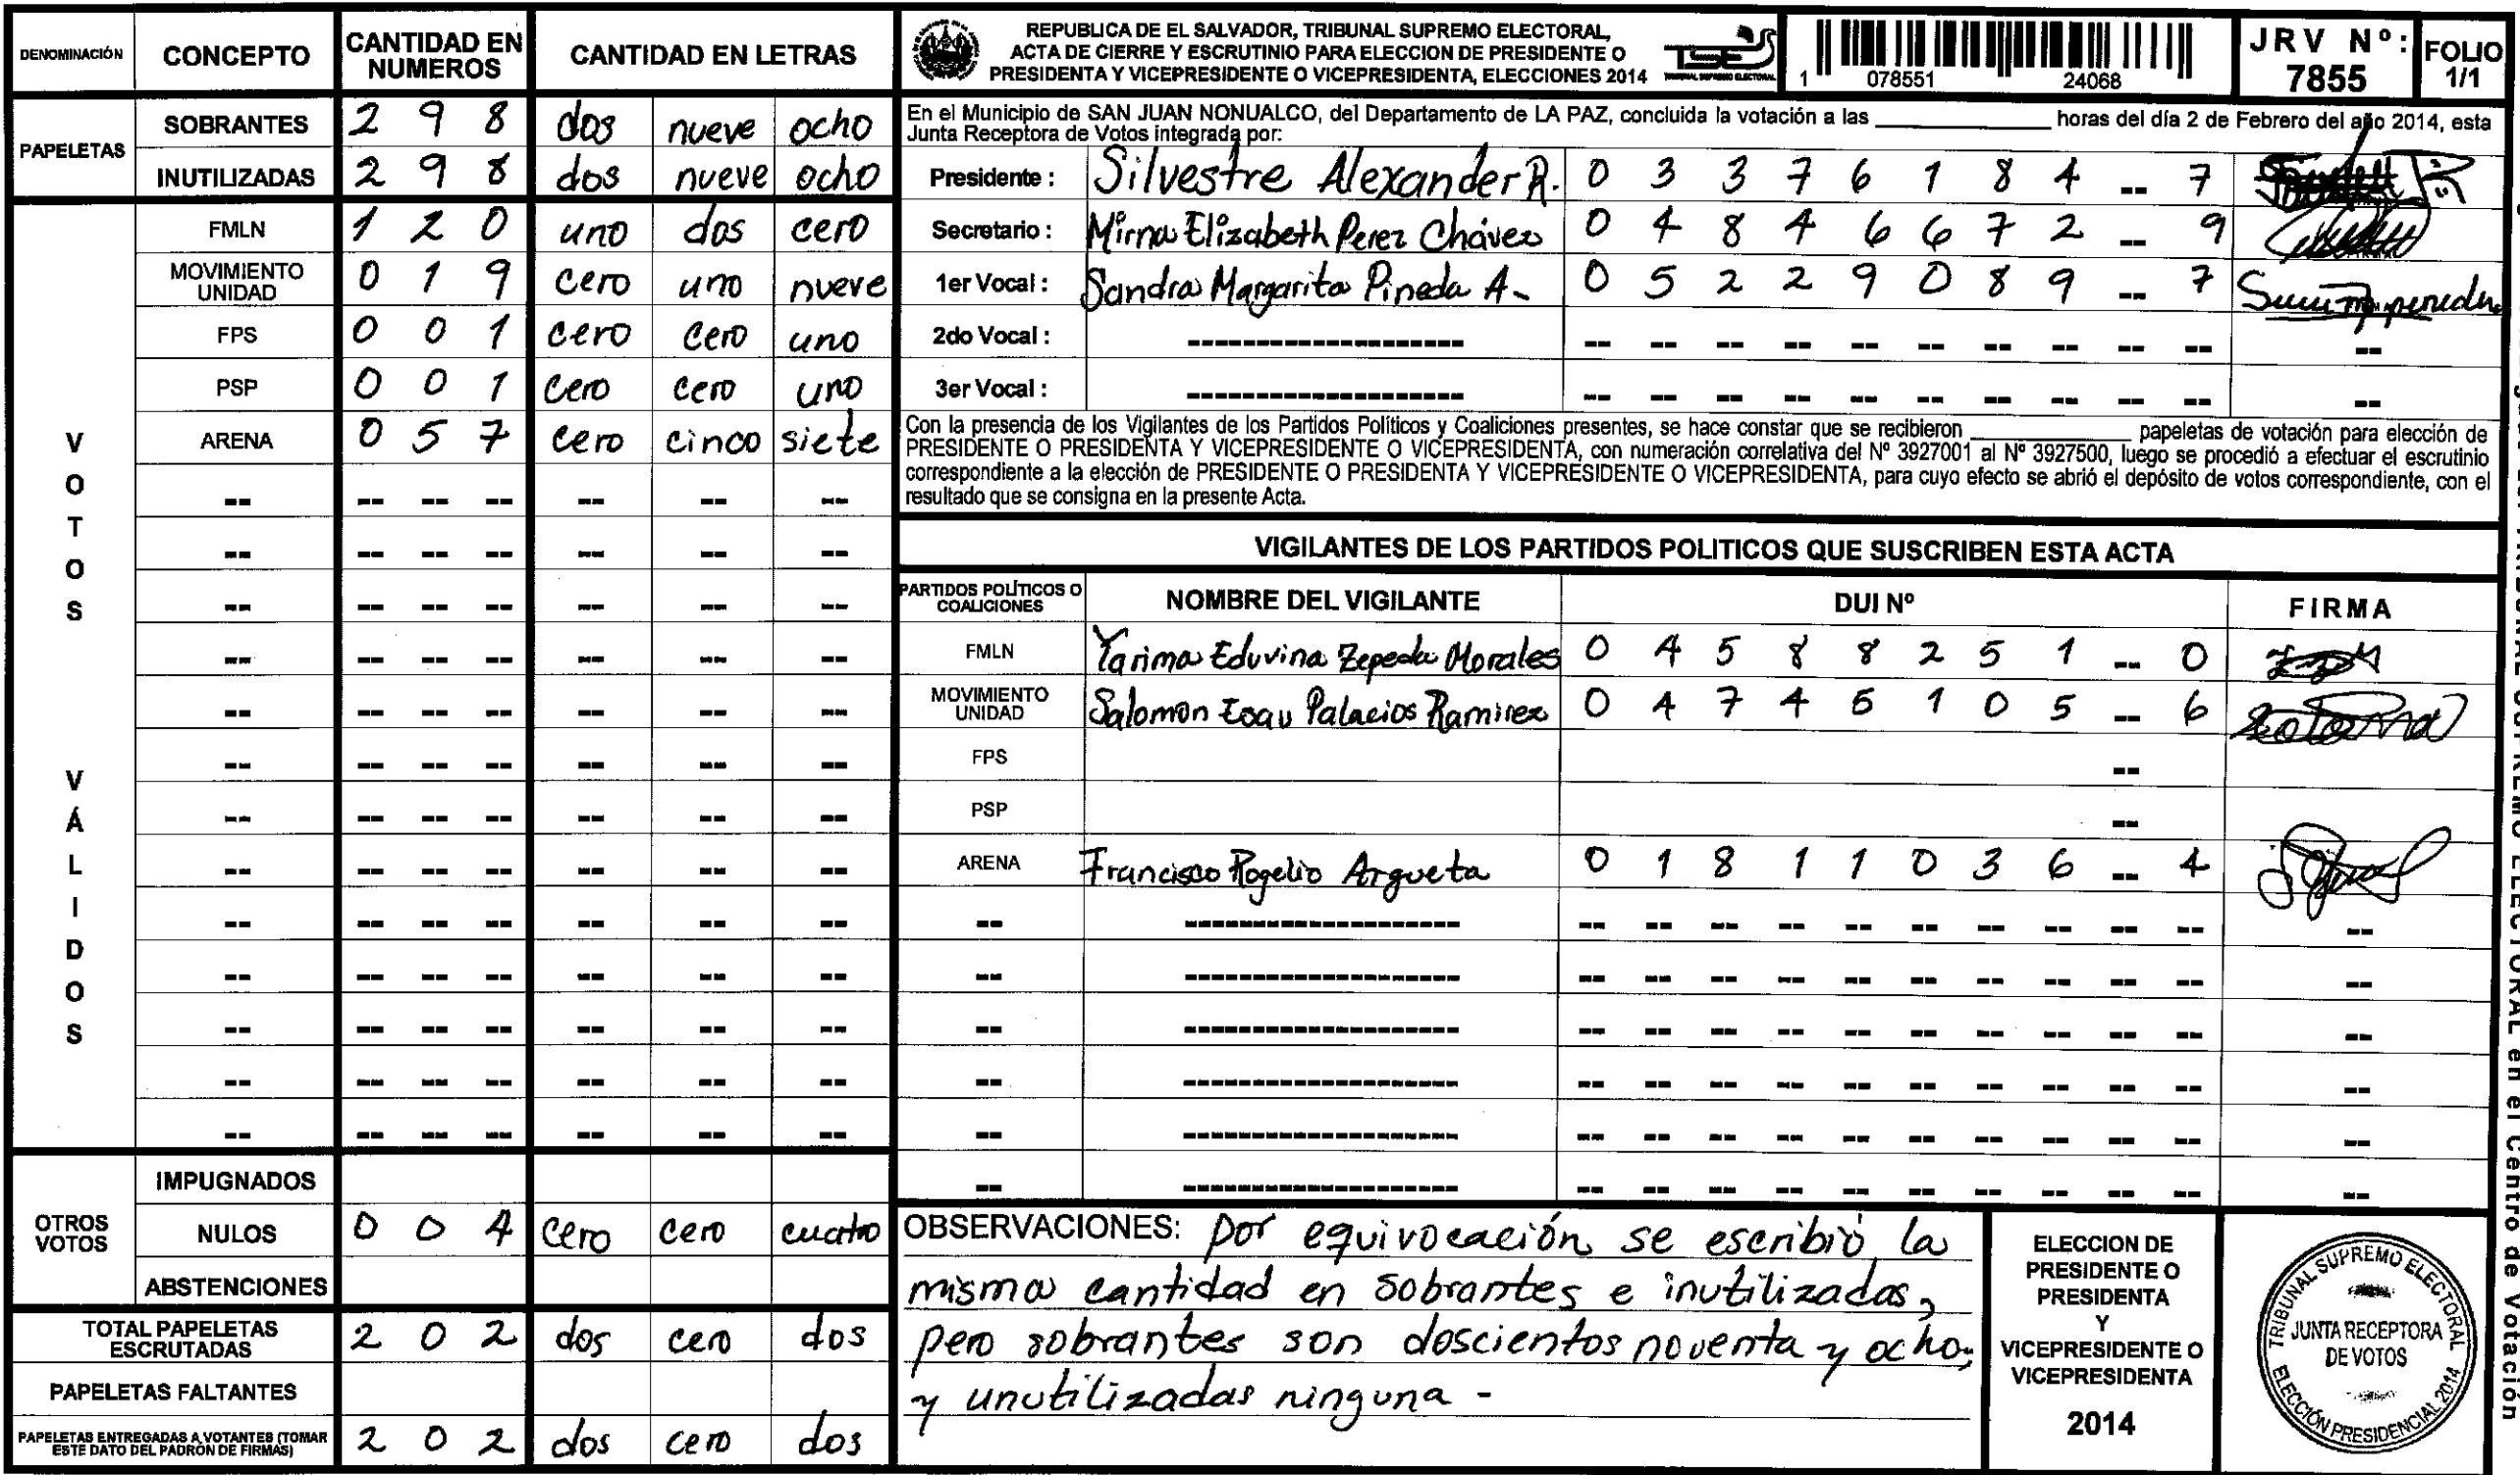 DENOMINACIÓN CONCEPTO CANTIDAD EN NUMEROS CANTIDAD EN LETRAS
PAPELETAS
SOBRANTES 2 9 8 dos nueve ocho
INUTILIZADAS 2 9 8 dos nueve ocho
VOTOS VÁLIDOS
FMLN 1 2 0 uno dos cero
MOVIMIENTO UNIDAD 0 1 9 cero uno nueve
FPS 0 0 1 cero cero uno
PSP 0 0 1 cero cero uno
ARENA 0 5 7 cero cinco siete
-- -- -- -- -- -- --
-- -- -- -- -- -- --
-- -- -- -- -- -- --
-- -- -- -- -- -- --
-- -- -- -- -- -- --
-- -- -- -- -- -- --
-- -- -- -- -- -- --
-- -- -- -- -- -- --
-- -- -- -- -- -- --
-- -- -- -- -- -- --
-- -- -- -- -- -- --
-- -- -- -- -- -- --
-- -- -- -- -- -- --
OTROS VOTOS
IMPUGNADOS
NULOS 0 0 4 cero cero cuatro
ABSTENCIONES
TOTAL PAPELETAS ESCRUTADAS 2 0 2 dos cero dos
PAPELETAS FALTANTES
PAPELETAS ENTREGADAS A VOTANTES (TOMAR ESTE DATO DEL PADRÓN DE FIRMAS) 2 0 2 dos cero dos
REPUBLICA DE EL SALVADOR, TRIBUNAL SUPREMO ELECTORAL,
ACTA DE CIERRE Y ESCRUTINIO PARA ELECCION DE PRESIDENTE O
PRESIDENTA Y VICEPRESIDENTE O VICEPRESIDENTA, ELECCIONES 2014
TSE
TRIBUNAL SUPREMO ELECTORAL
1 078551 24068
JRV Nº: 7855
FOLIO 1/1
En el Municipio de SAN JUAN NONUALCO, del Departamento de LA PAZ, concluida la votación a las ________ horas del día 2 de Febrero del año 2014, esta
Junta Receptora de Votos integrada por:
Presidente : Silvestre Alexander R. 0 3 3 7 6 1 8 4 -- 7
Secretario : Mirna Elizabeth Perez Chávez 0 4 8 4 6 6 7 2 -- 9
1er Vocal : Sandra Margarita Pineda A- 0 5 2 2 9 0 8 9 -- 7
2do Vocal : -------------------- -- -- -- -- -- -- -- -- -- -- --
3er Vocal : -------------------- -- -- -- -- -- -- -- -- -- -- --
Con la presencia de los Vigilantes de los Partidos Políticos y Coaliciones presentes, se hace constar que se recibieron ________ papeletas de votación para elección de
PRESIDENTE O PRESIDENTA Y VICEPRESIDENTE O VICEPRESIDENTA, con numeración correlativa del Nº 3927001 al Nº 3927500, luego se procedió a efectuar el escrutinio
correspondiente a la elección de PRESIDENTE O PRESIDENTA Y VICEPRESIDENTE O VICEPRESIDENTA, para cuyo efecto se abrió el depósito de votos correspondiente, con el
resultado que se consigna en la presente Acta.
VIGILANTES DE LOS PARTIDOS POLITICOS QUE SUSCRIBEN ESTA ACTA
PARTIDOS POLÍTICOS O COALICIONES NOMBRE DEL VIGILANTE DUI Nº FIRMA
FMLN Yanima Eduvina Zepeda Morales 0 4 5 8 8 2 5 1 -- 0
MOVIMIENTO UNIDAD Salomon Esau Palacios Ramirez 0 4 7 4 5 1 0 5 -- 6
FPS --
PSP --
ARENA Francisco Rogelio Argueta 0 1 8 1 1 0 3 6 -- 4
-- -------------------- -- -- -- -- -- -- -- -- -- -- --
-- -------------------- -- -- -- -- -- -- -- -- -- -- --
-- -------------------- -- -- -- -- -- -- -- -- -- -- --
-- -------------------- -- -- -- -- -- -- -- -- -- -- --
-- -------------------- -- -- -- -- -- -- -- -- -- -- --
-- -------------------- -- -- -- -- -- -- -- -- -- -- --
OBSERVACIONES: por equivocación se escribió la
misma cantidad en sobrantes e inutilizadas,
pero sobrantes son doscientos noventa y ocho;
y unutilizadas ninguna -
ELECCION DE
PRESIDENTE O
PRESIDENTA
Y
VICEPRESIDENTE O
VICEPRESIDENTA
2014
TRIBUNAL SUPREMO ELECTORAL
JUNTA RECEPTORA
DE VOTOS
ELECCIÓN PRESIDENCIAL 2014
TRIBUNAL SUPREMO ELECTORAL en el Centro de Votación